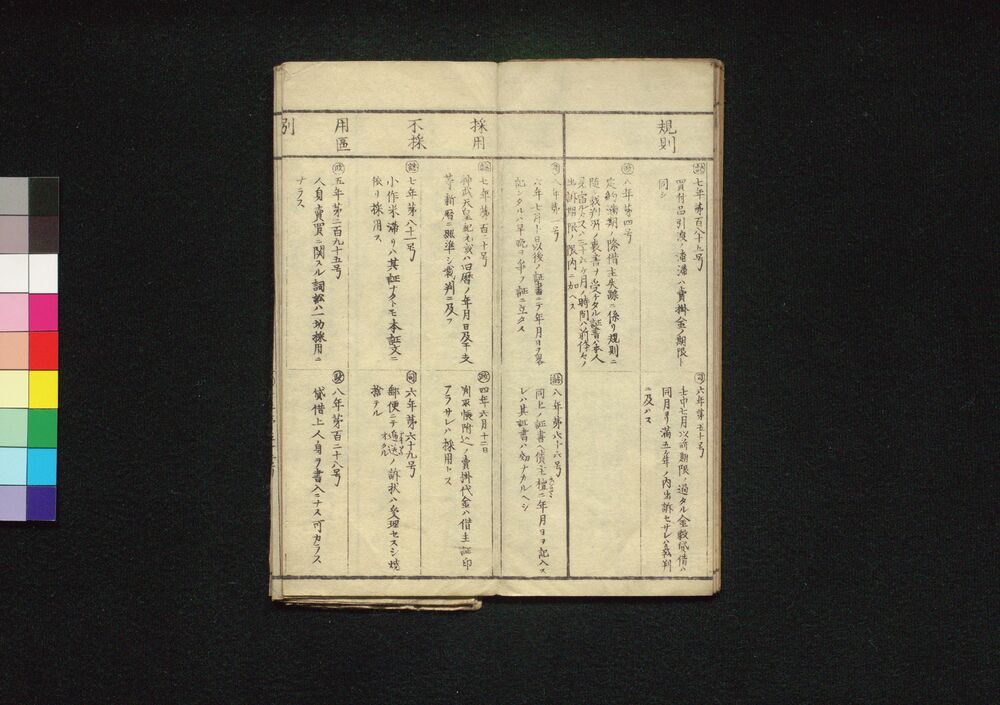 規則
七年第百八十九号
買付品引渡ノ滝滞ハ賣掛金ノ期限ト
同シ
六年第五十号
壬申七月以前期限ノ過タル金穀貸借ハ
同月ヨリ満五ケ年ノ内出訴セサレハ裁判
ニ及ハス
八年第四号
定約満期ノ際借主失踪ニ係リ規則ニ
随ヒ裁判所ノ裏書ヲ受ケタル証書ハ本人
見当ルカ又ハ三十六ケ月ノ時間ハ前條々ノ
出訴期限ノ限内ニ加ヘス
採用
不採
用區
別
八年第一号
六年七月十日以後ノ証書ニテ年月日ヲ畧
記シタルハ早晩ヲ争フノ証ニ立タス
八年第六十六号
同上ノ証書ヘ債主檀ニ年月日ヲ記入ス
レハ其証書ハ効ナカルヘシ
七年第百二十号
神武天皇紀元或ハ旧暦ノ年月日及干支
等新暦ニ照準シ裁判ニ及フ
四年六月十二日
判取帳附込ノ賣掛代金ハ借主証印
アラサレハ採用セス
七年第八十一号
小作米滞リハ其証ナクトモ本証文ニ
依リ採用ス
六年第六十九号
郵便ニテ逓送ノ訴状ハ受理セスシ焼
捨テル
五年第二百九十五号
人身賣買ニ関スル詞訟ハ一切採用ニ
ナラス
八年第百二十八号
貸借上人身ヲ書入ニナス可カラス